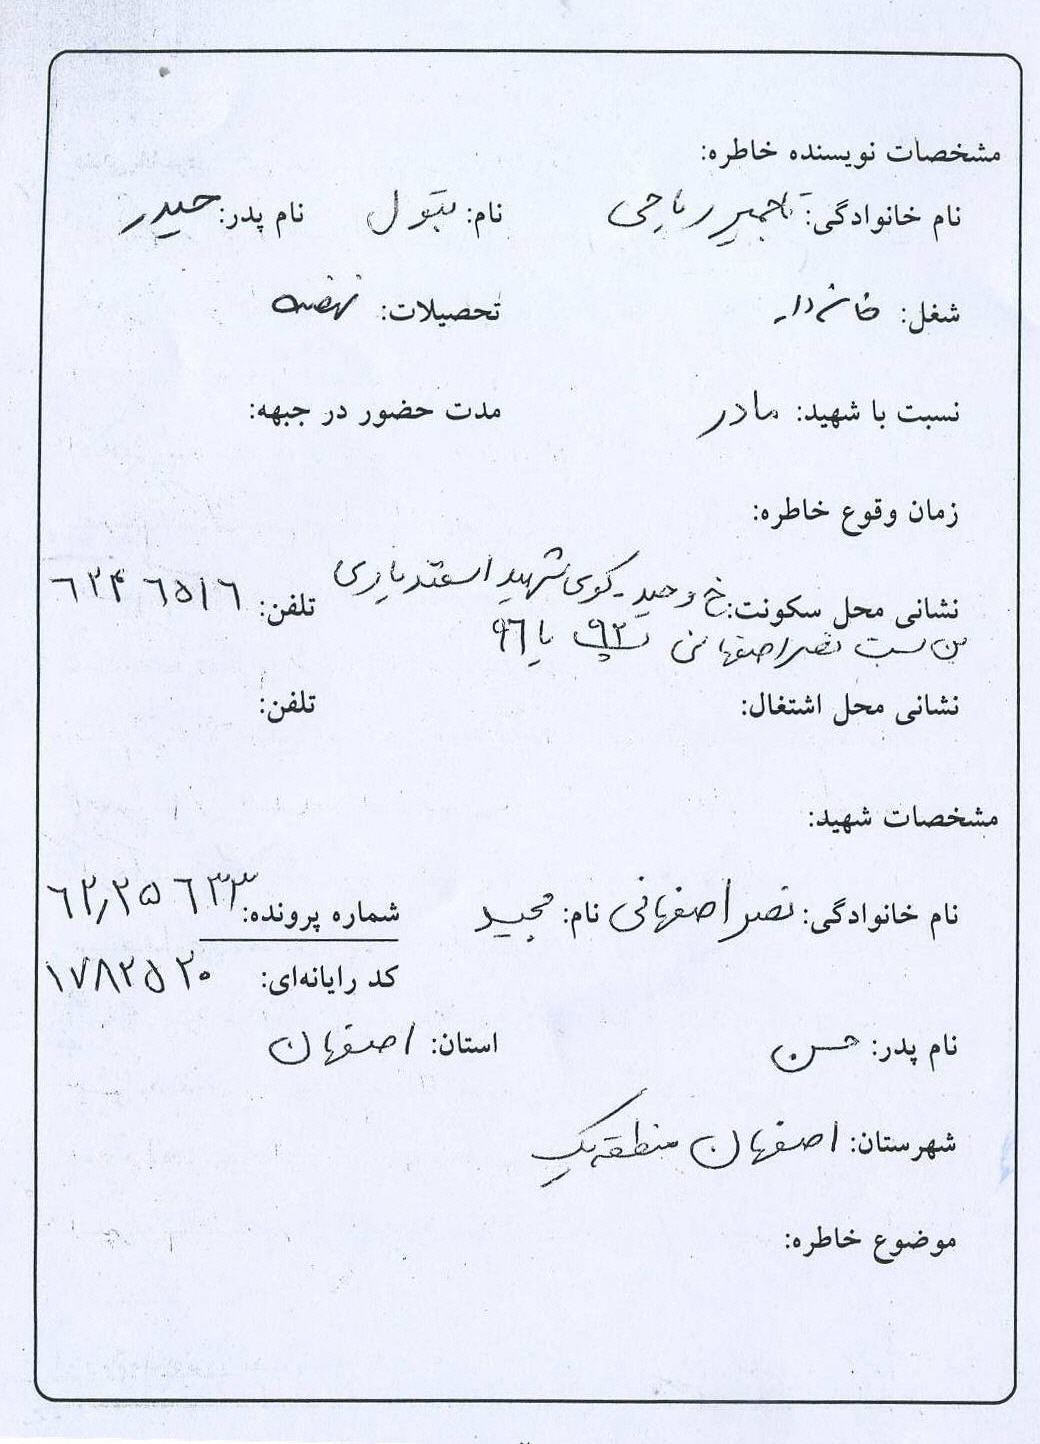 مشخصات نویسنده خاطره:
نام خانوادگی: تاجمیر ریاحی نام: بتول نام پدر: حیدر
شغل: خانه دار تحصیلات: نهضت
نسبت با شهید: مادر مدت حضور در جبهه:
زمان وقوع خاطره:
نشانی محل سکونت: خ وحید - کوی شهید اسفندیاری تلفن: ۶۲۴۶۵۱۶
بن بست نصر اصفهانی پ ۹۲ یا ۹۶
نشانی محل اشتغال: تلفن:
مشخصات شهید:
نام خانوادگی: نصر اصفهانی نام: مجید شماره پرونده:
کد رایانه‌ای: ۱۷۸۲۵۲۰
نام پدر: حسن استان: اصفهان
شهرستان: اصفهان منطقه یک
موضوع خاطره: